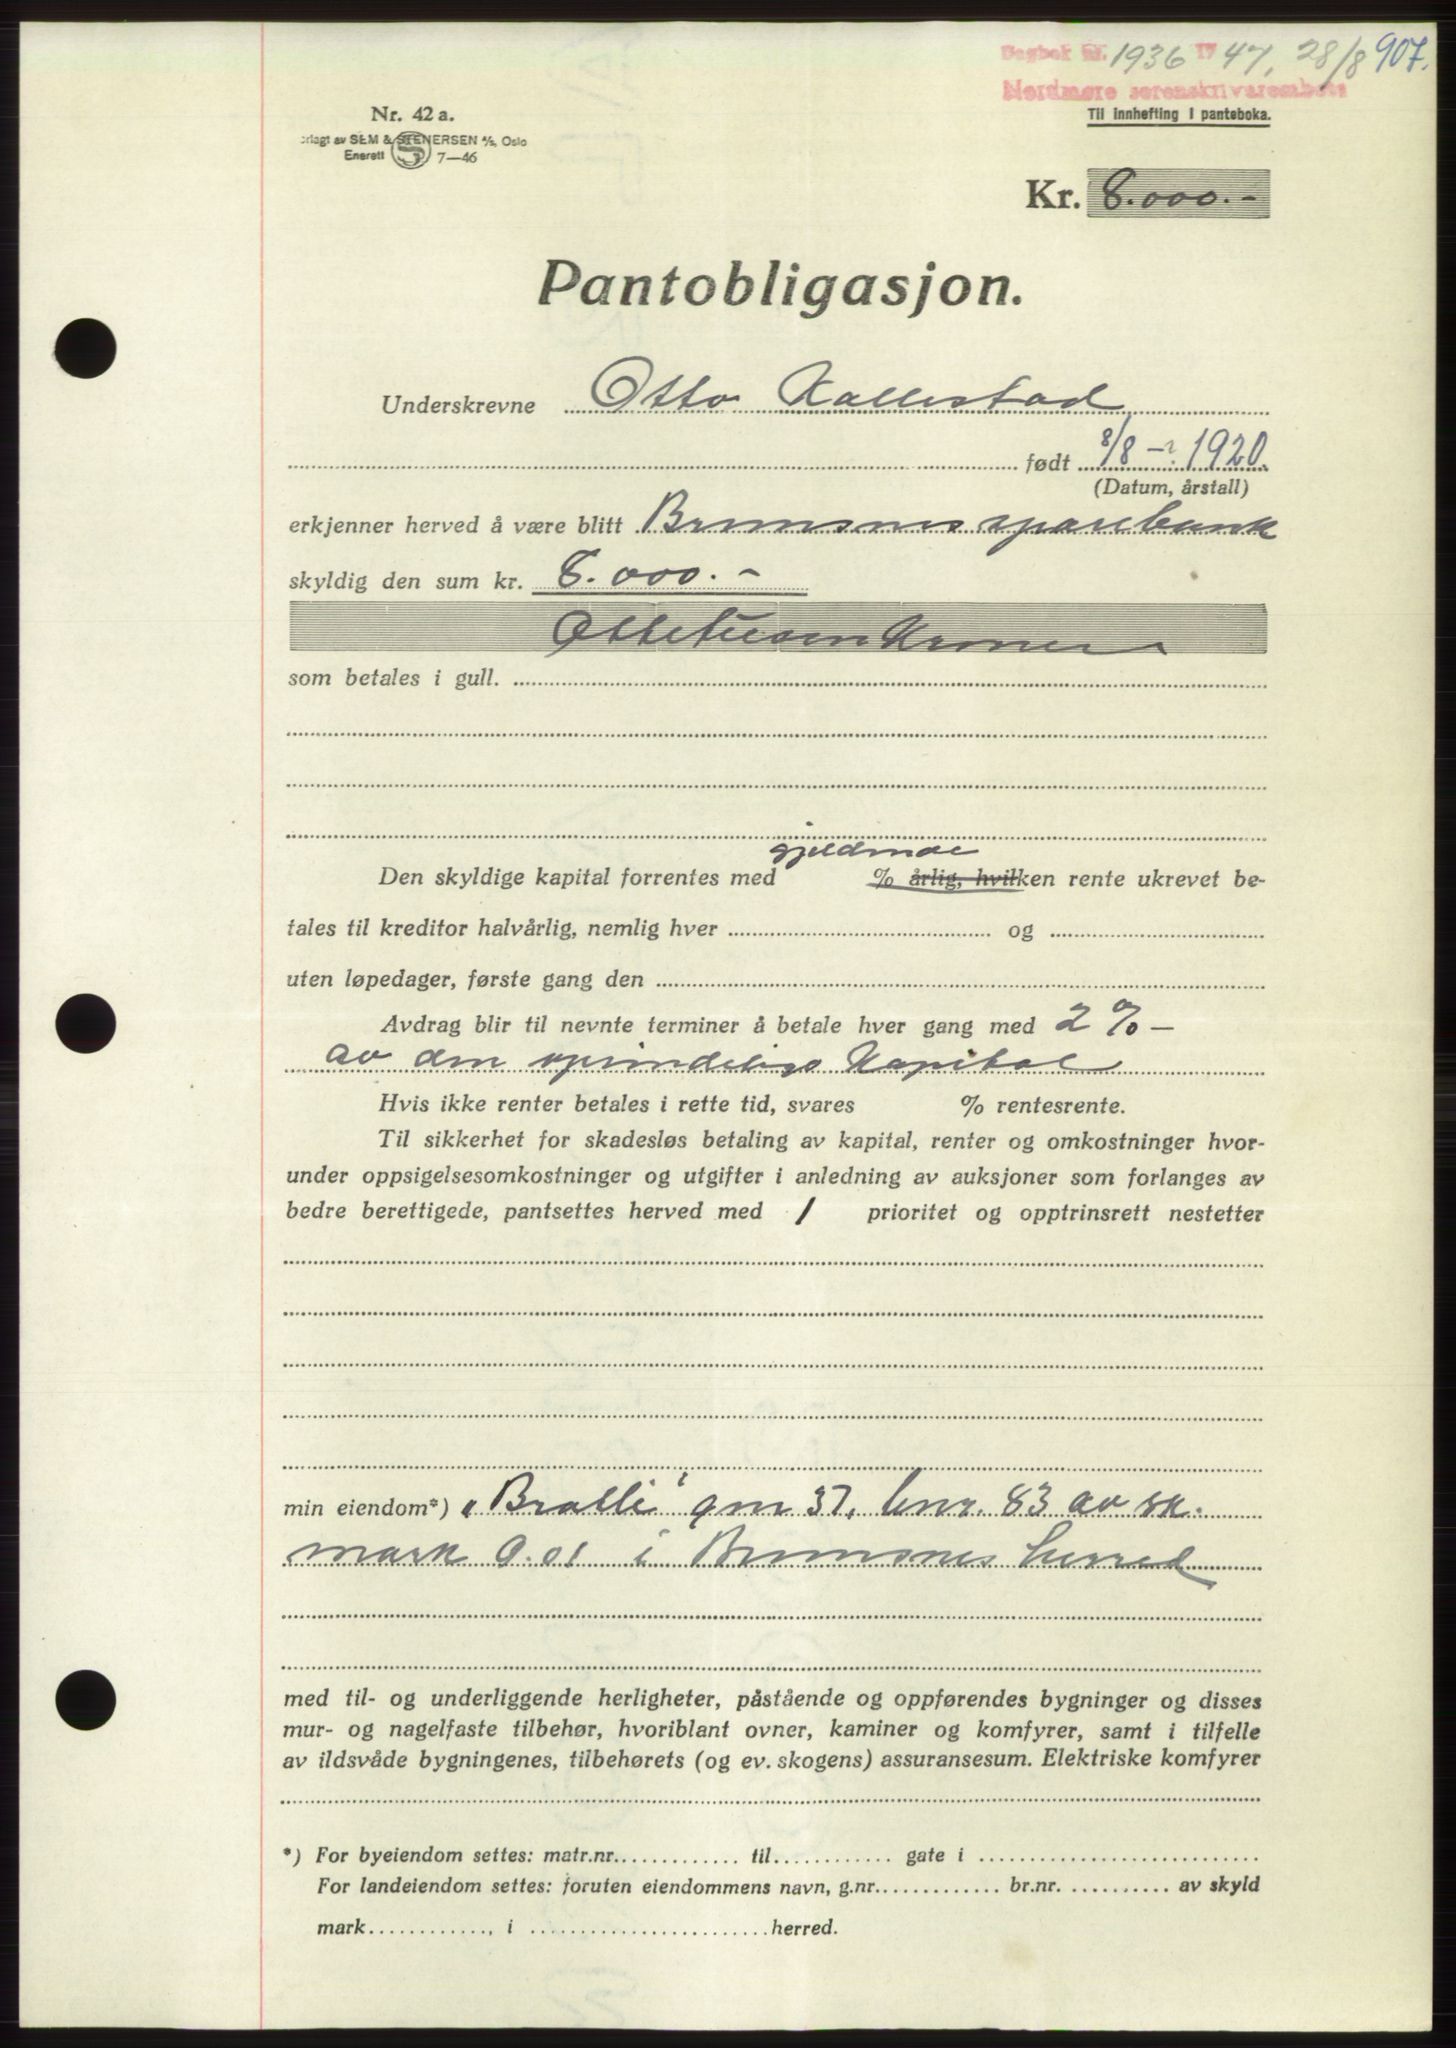 Dagbok nr. 1936 19 47, 28/8 907.
Nordmøre sorenskriverembete
Til innhefting i panteboka.
Nr. 42 a.
rlagt av SEM & STENERSEN A/S, Oslo
Enerett 7—46
Kr. 8.000.-
Pantobligasjon.
Underskrevne Otto Kallestad
født 8/8 - 1920.
(Datum, årstall)
erkjenner herved å være blitt Bremsnes sparebank
skyldig den sum kr. 8.000.-
Ottetusen Kroner
som betales i gull.
gjeldende
Den skyldige kapital forrentes med % årlig, hvilken rente ukrevet be-
tales til kreditor halvårlig, nemlig hver og
uten løpedager, første gang den
Avdrag blir til nevnte terminer å betale hver gang med 2 % -
av den oprindelige Kapital
Hvis ikke renter betales i rette tid, svares % rentesrente.
Til sikkerhet for skadesløs betaling av kapital, renter og omkostninger hvor-
under oppsigelsesomkostninger og utgifter i anledning av auksjoner som forlanges av
bedre berettigede, pantsettes herved med 1 prioritet og opptrinsrett nestetter
min eiendom*) „Bratli" gnr 37, bnr. 83 av sk.
mark 0.01 i Bremsnes herred
med til- og underliggende herligheter, påstående og oppførendes bygninger og disses
mur- og nagelfaste tilbehør, hvoriblant ovner, kaminer og komfyrer, samt i tilfelle
av ildsvåde bygningenes, tilbehørets (og ev. skogens) assuransesum. Elektriske komfyrer
*) For byeiendom settes: matr.nr. til gate i
For landeiendom settes: foruten eiendommens navn, g.nr. br.nr. av skyld
mark , i herred.